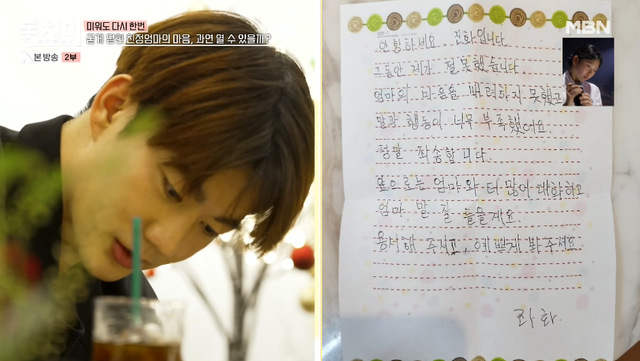 동치미
미워도 다시 한번
굳게 닫힌 친정엄마의 마음, 과연 열 수 있을까?
본 방송 2부
MBN
안녕하세요. 진화입니다.
그동안 제가 잘못했습니다.
엄마의 마음을 배려하지 못했고
말과 행동이 너무 부족했어요.
정말 죄송합니다.
앞으로는 엄마와 더 많이 대화하고
엄마 말 잘 들을게요.
용서해 주시고, 예쁘게 봐주세요.